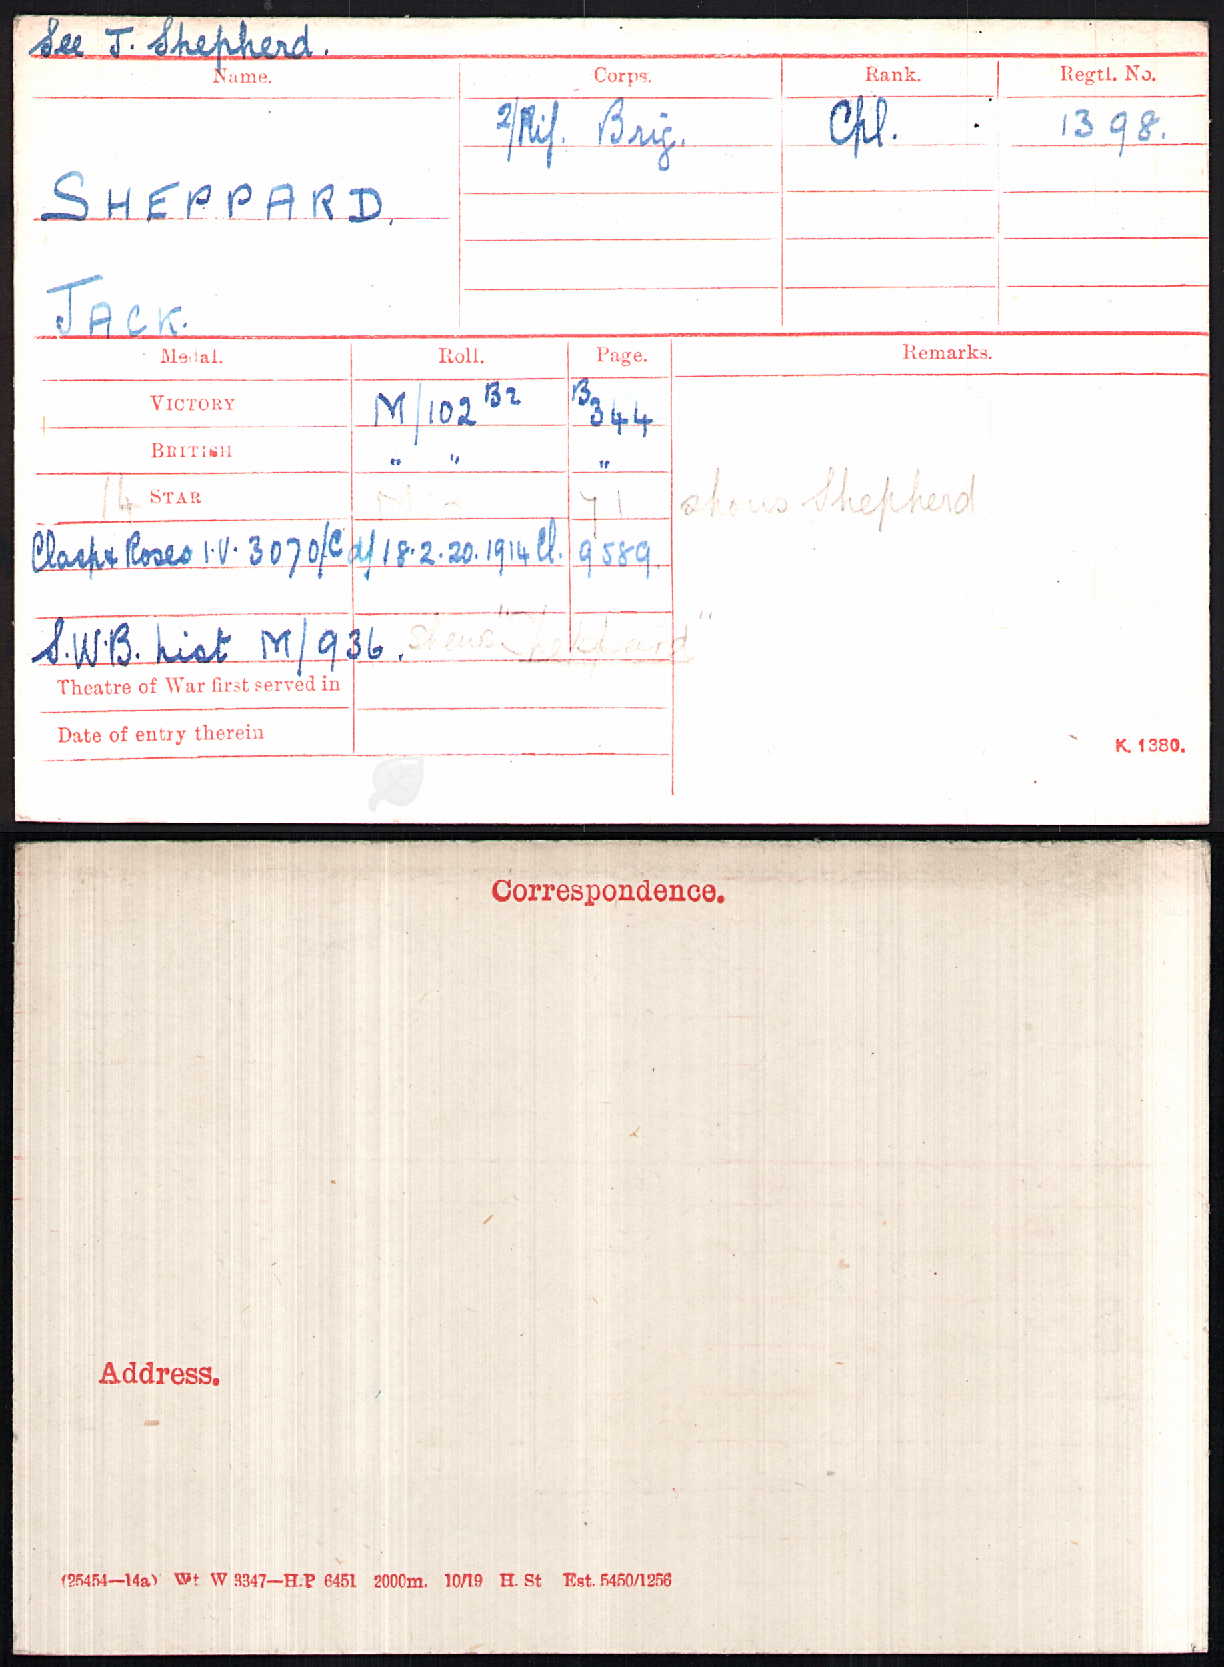 See J. Shepherd.
Name. Corps. Rank. Regtl. No.
2/Rif. Brig. Cpl. 1398.
SHEPPARD,
JACK.
Medal. Roll. Page. Remarks.
VICTORY M/102 B2 B 344
BRITISH " " "
14 STAR 71 shows Shepherd
Clasp & Roses I.V. 3070/C d/ 18.2.20. 1914 Cl. 9589.
S.W.B. List M/936.
Theatre of War first served in
Date of entry therein
K. 1380.
Correspondence.
Address.
(25454—14a) Wt W 3347—H.P 6451 2000m. 10/19 H. St Est. 5450/1256